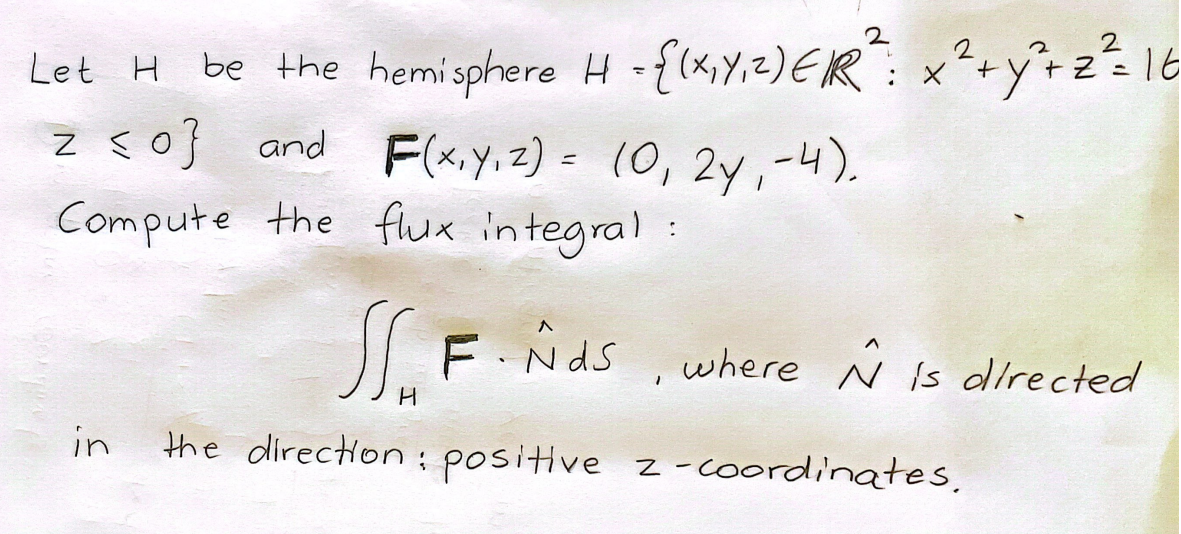 Let H be the hemisphere H = {(x,y,z) ∈ ℝ²: x² + y² + z² = 16
z ≤ 0} and F(x,y,z) = (0, 2y, -4).
Compute the flux integral :
∬_H F · N̂ dS , where N̂ is directed
in the direction : positive z-coordinates.